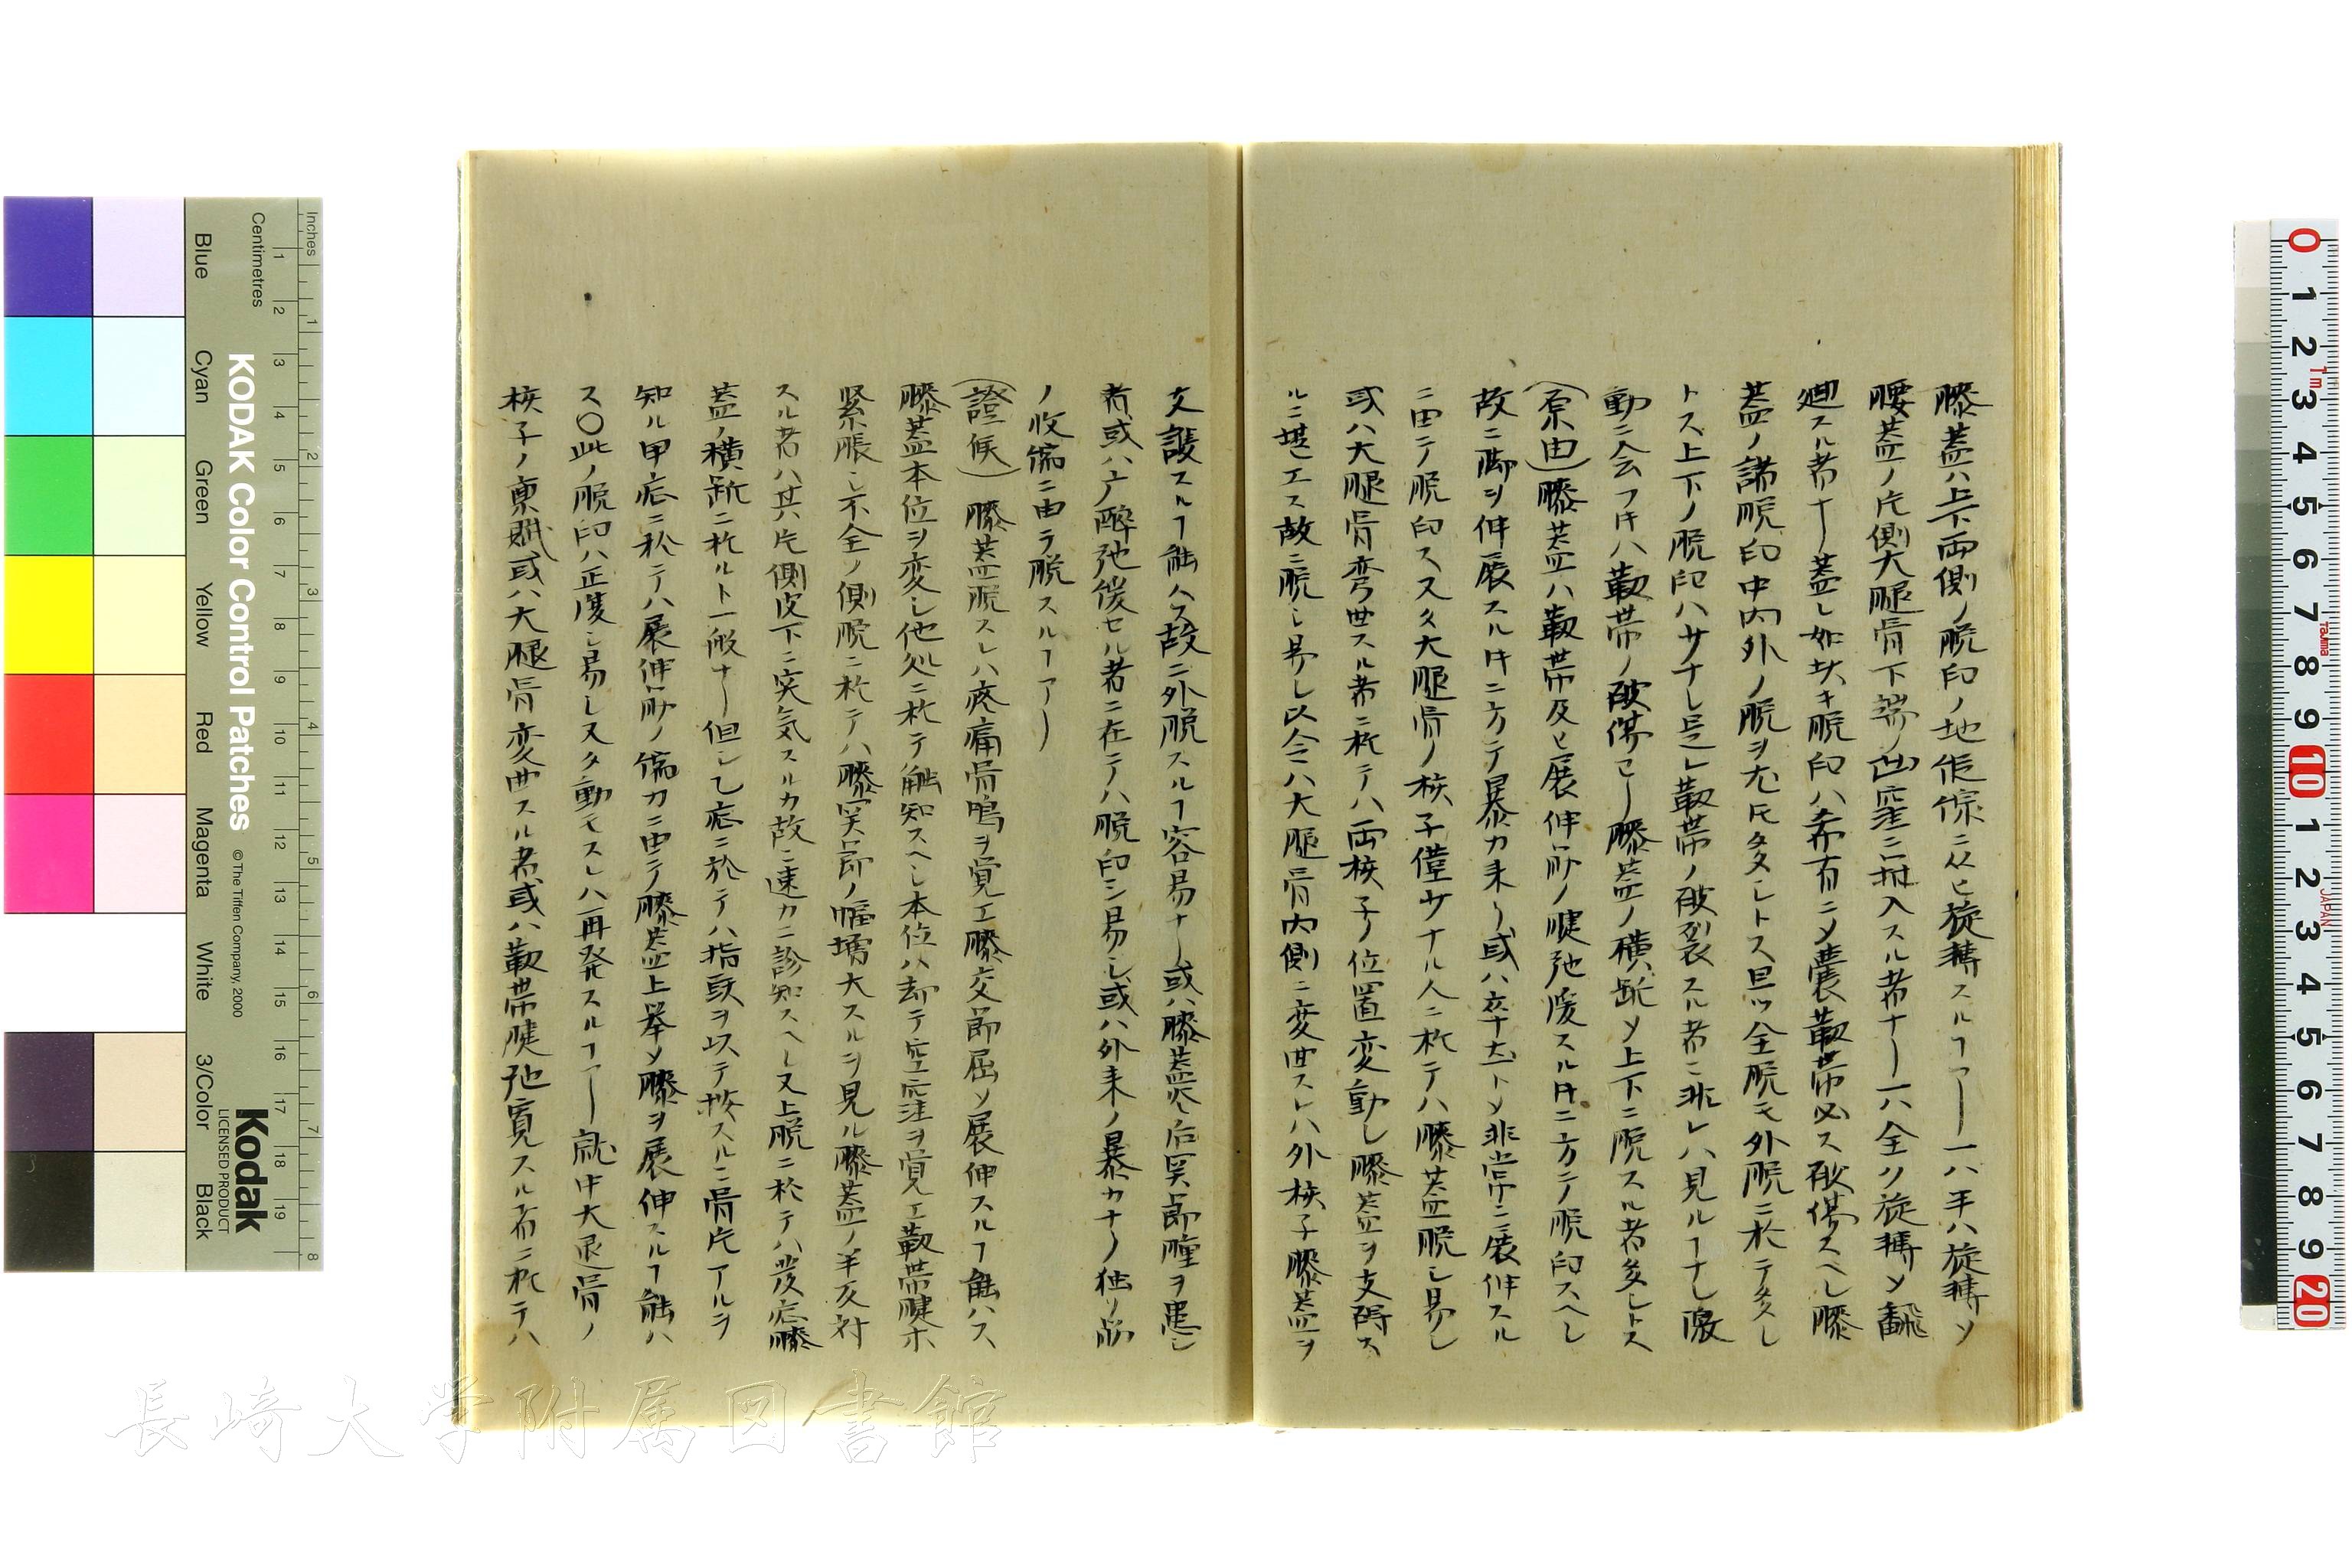 膝蓋ハ上下両側ノ脱臼ノ他仮髁ニ从ヒ旋轉スルヿアリ一ハ半ハ旋轉ソ
膝蓋ノ片側大腿骨下端ノ凹窪ニ挿入スル者ナリ一ハ全ク旋轉ソ飜
廻スル者ナリ蓋し如此キ脱臼ハ希有ニノ嚢靱帯必ス破傷スヘし膝
蓋ノ諸脱臼中内外ノ脱ヲ尤モ多しトス且ツ全脱モ外脱ニ於テ多し
トス上下ノ脱臼ハサナし是レ靱帯ノ破裂スル者ニ非レハ見ルヿナし
動ニ会フ片ハ靱帯ノ破傷ヒー膝蓋ノ横跡ソ上下ニ脱スル者多しトス
(原由)膝蓋ハ靱帯及ヒ展伸筋ノ腱弛緩スル片ニ方テ脱臼スヘし
故ニ脚ヲ伸展スル片ニ方テ暴力来リ或ハ卒去トソ非常ニ展伸スル
ニ由テ脱臼ス又大腿骨ノ核子僅少ナル人ニ於テハ膝蓋脱し易し
或ハ大腿骨弯曲スル者ニ於テハ両核子ノ位置変動し膝蓋ヲ支碍ス
ルニ堪エス故ニ脱し易し以令ハ大腿骨内側ニ変曲スレハ外核子膝蓋ヲ
支護スルヿ能ハス故ニ外脱スルヿ容易ナリ或ハ膝蓋炎后関節腫ヲ患し
者或ハ産醉弛緩セル者ニ在テハ脱臼シ易し或ハ外来ノ暴力ナク独リ筋
ノ收縮ニ由テ脱スルヿアリ
(證候)膝蓋脱スレハ疼痛骨鳴ヲ覚エ膝交節屈ソ展伸スルヿ能ハス
膝蓋本位ヲ変し他処ニ於テ觸知スヘし本位ハ却テ空窪ヲ覚エ靱帯腱ホ
緊脹し不全ノ側脱ニ於テハ膝関節ノ幅増大スルヲ見ル膝蓋ノ半反対
スル者ハ其片側皮下ニ突気スルカ故ニ速カニ診知スヘし又上脱ニ於テハ症膝
蓋ノ横跡ニ於ルト一般ナリ但し乙症ニ於テハ指頭ヲ以テ按スルニ骨片アルヲ
知ル甲症ニ於テハ展伸筋ノ縮力ニ由テ膝蓋上挙ソ膝ヲ展伸スルヿ能ハ
ス〇此ノ脱臼ハ正復し易し又タ動モスレハ再発スルヿアリ就中大退骨ノ
核子ノ稟賦或ハ大腿骨変曲スル者或ハ靱帯腱弛寛スル者ニ於テハ
長崎大学附属図書館
KODAK Color Control Patches
Kodak
LICENSED PRODUCT
© The Tiffen Company, 2000
Inches
Centimetres
Blue
Cyan
Green
Yellow
Red
Magenta
White
3/Color
Black